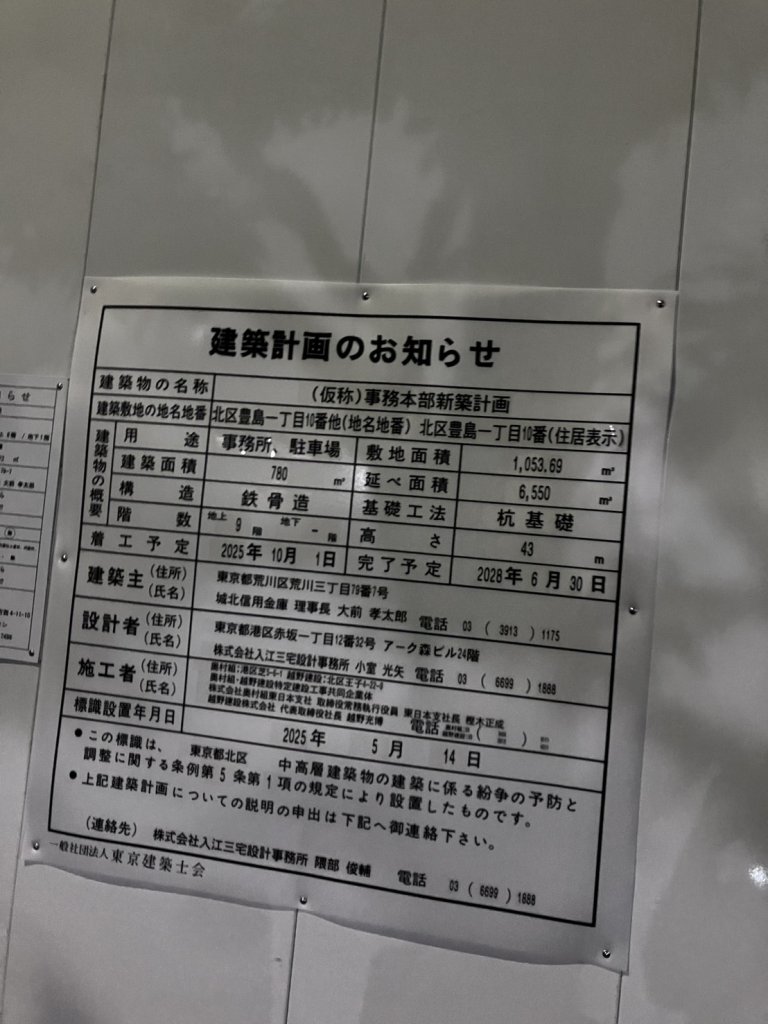 建築計画のお知らせ
建築物の名称 (仮称)事務本部新築計画
建築敷地の地名地番 北区豊島一丁目10番他(地名地番) 北区豊島一丁目10番(住居表示)
建築物の概要
用途 事務所、駐車場 敷地面積 1,053.69 m²
建築面積 780 m² 延べ面積 6,550 m²
構造 鉄骨造 基礎工法 杭基礎
階数 地上 9 階 地下 - 階 高さ 43 m
着工予定 2025年 10月 1日 完了予定 2028年 6月 30日
建築主 (住所) 東京都荒川区荒川三丁目79番7号
(氏名) 城北信用金庫 理事長 大前 孝太郎 電話 03 ( 3913 ) 1175
設計者 (住所) 東京都港区赤坂一丁目12番32号 アーク森ビル24階
(氏名) 株式会社入江三宅設計事務所 小室 光矢 電話 03 ( 6699 ) 1888
施工者 (住所) 奥村組:港区芝5-6-1 越野建設:北区王子4-22-8
(氏名) 奥村・越野建設特定建設工事共同企業体
株式会社奥村組東日本支社 取締役常務執行役員 東日本支社長 樫木正成
越野建設株式会社 代表取締役社長 越野充博 電話
標識設置年月日 2025年 5月 14日
●この標識は、 東京都北区 中高層建築物の建築に係る紛争の予防と
調整に関する条例第5条第1項の規定により設置したものです。
●上記建築計画についての説明の申出は下記へ御連絡下さい。
(連絡先) 株式会社入江三宅設計事務所 隈部 俊輔 電話 03 ( 6699 ) 1888
一般社団法人東京建築士会